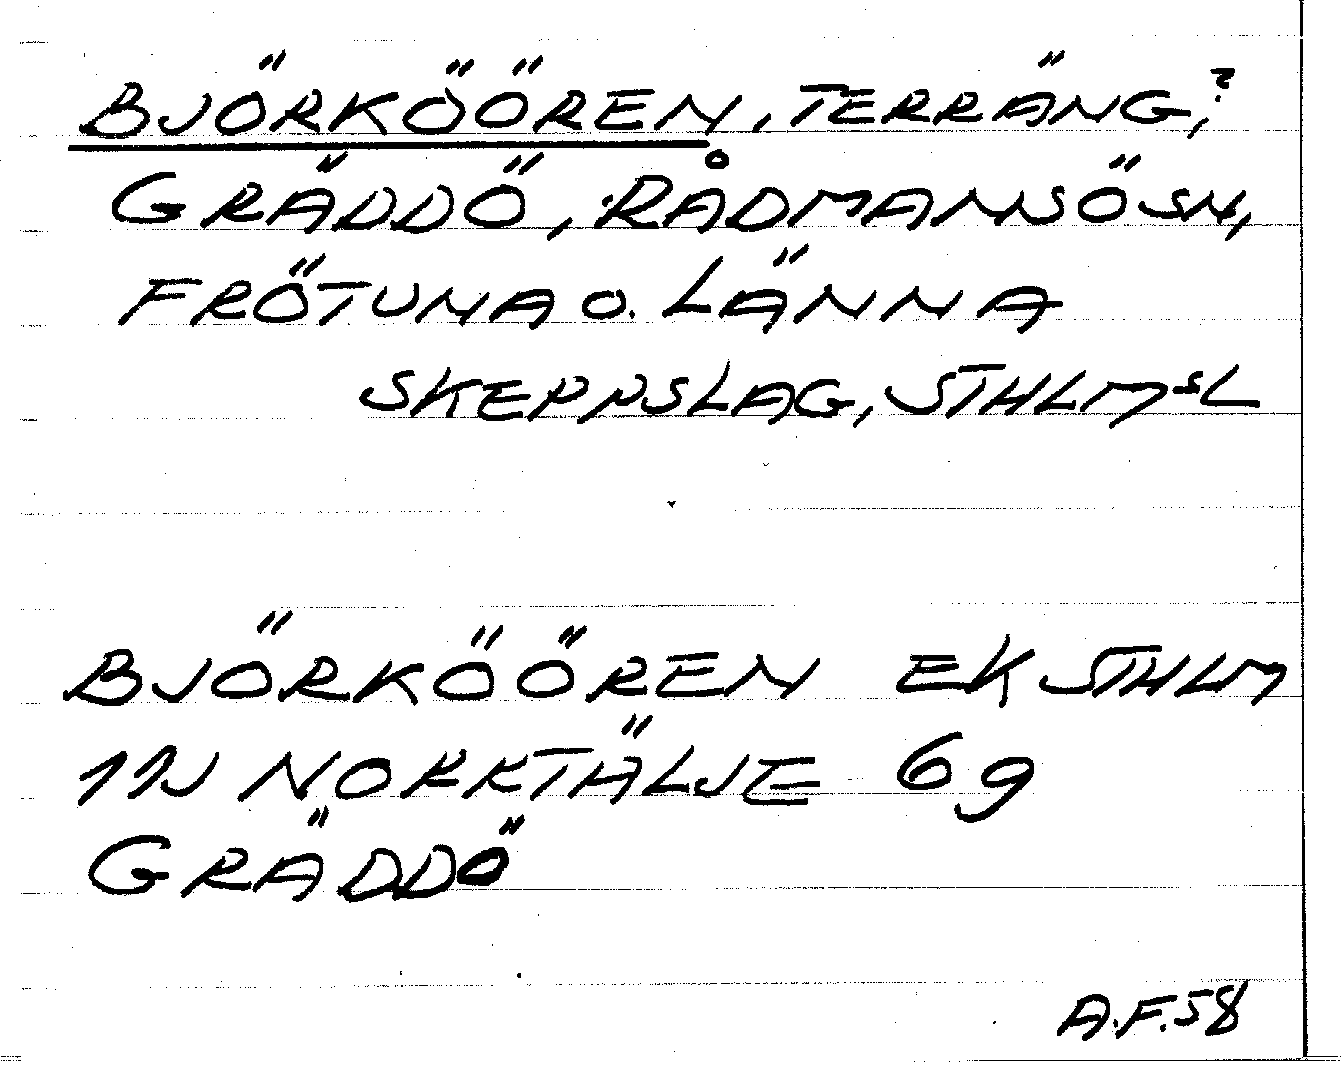 BJÖRKÖÖREN, TERRÄNG;?
GRÄDDÖ, RÅDMANSÖ SN,
FRÖTUNA O. LÄNNA
SKEPPSLAG, STHLMSL
BJÖRKÖÖREN EK STHLM
11J NORRTÄLJE 6 g
GRÄDDÖ
A.F. 58